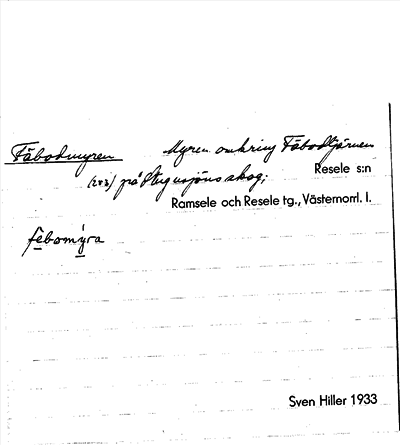 Fäbodmyren Myren omkring Fäbodtjärnen
på skog;
Resele s:n
Ramsele och Resele tg., Västernorrl. l.
febomyra
Sven Hiller 1933